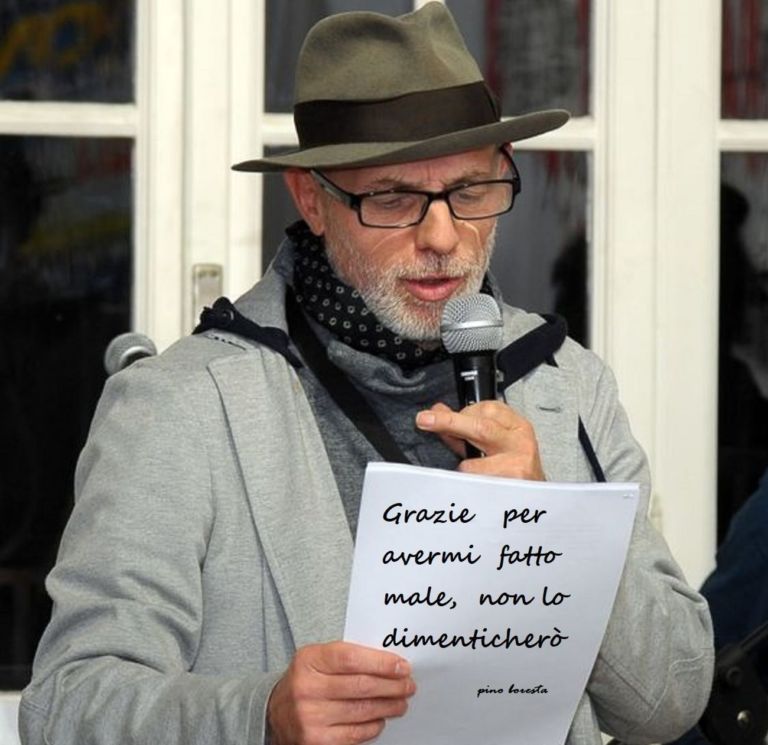 Grazie per
avermi fatto
male, non lo
dimenticherò
pino boresta